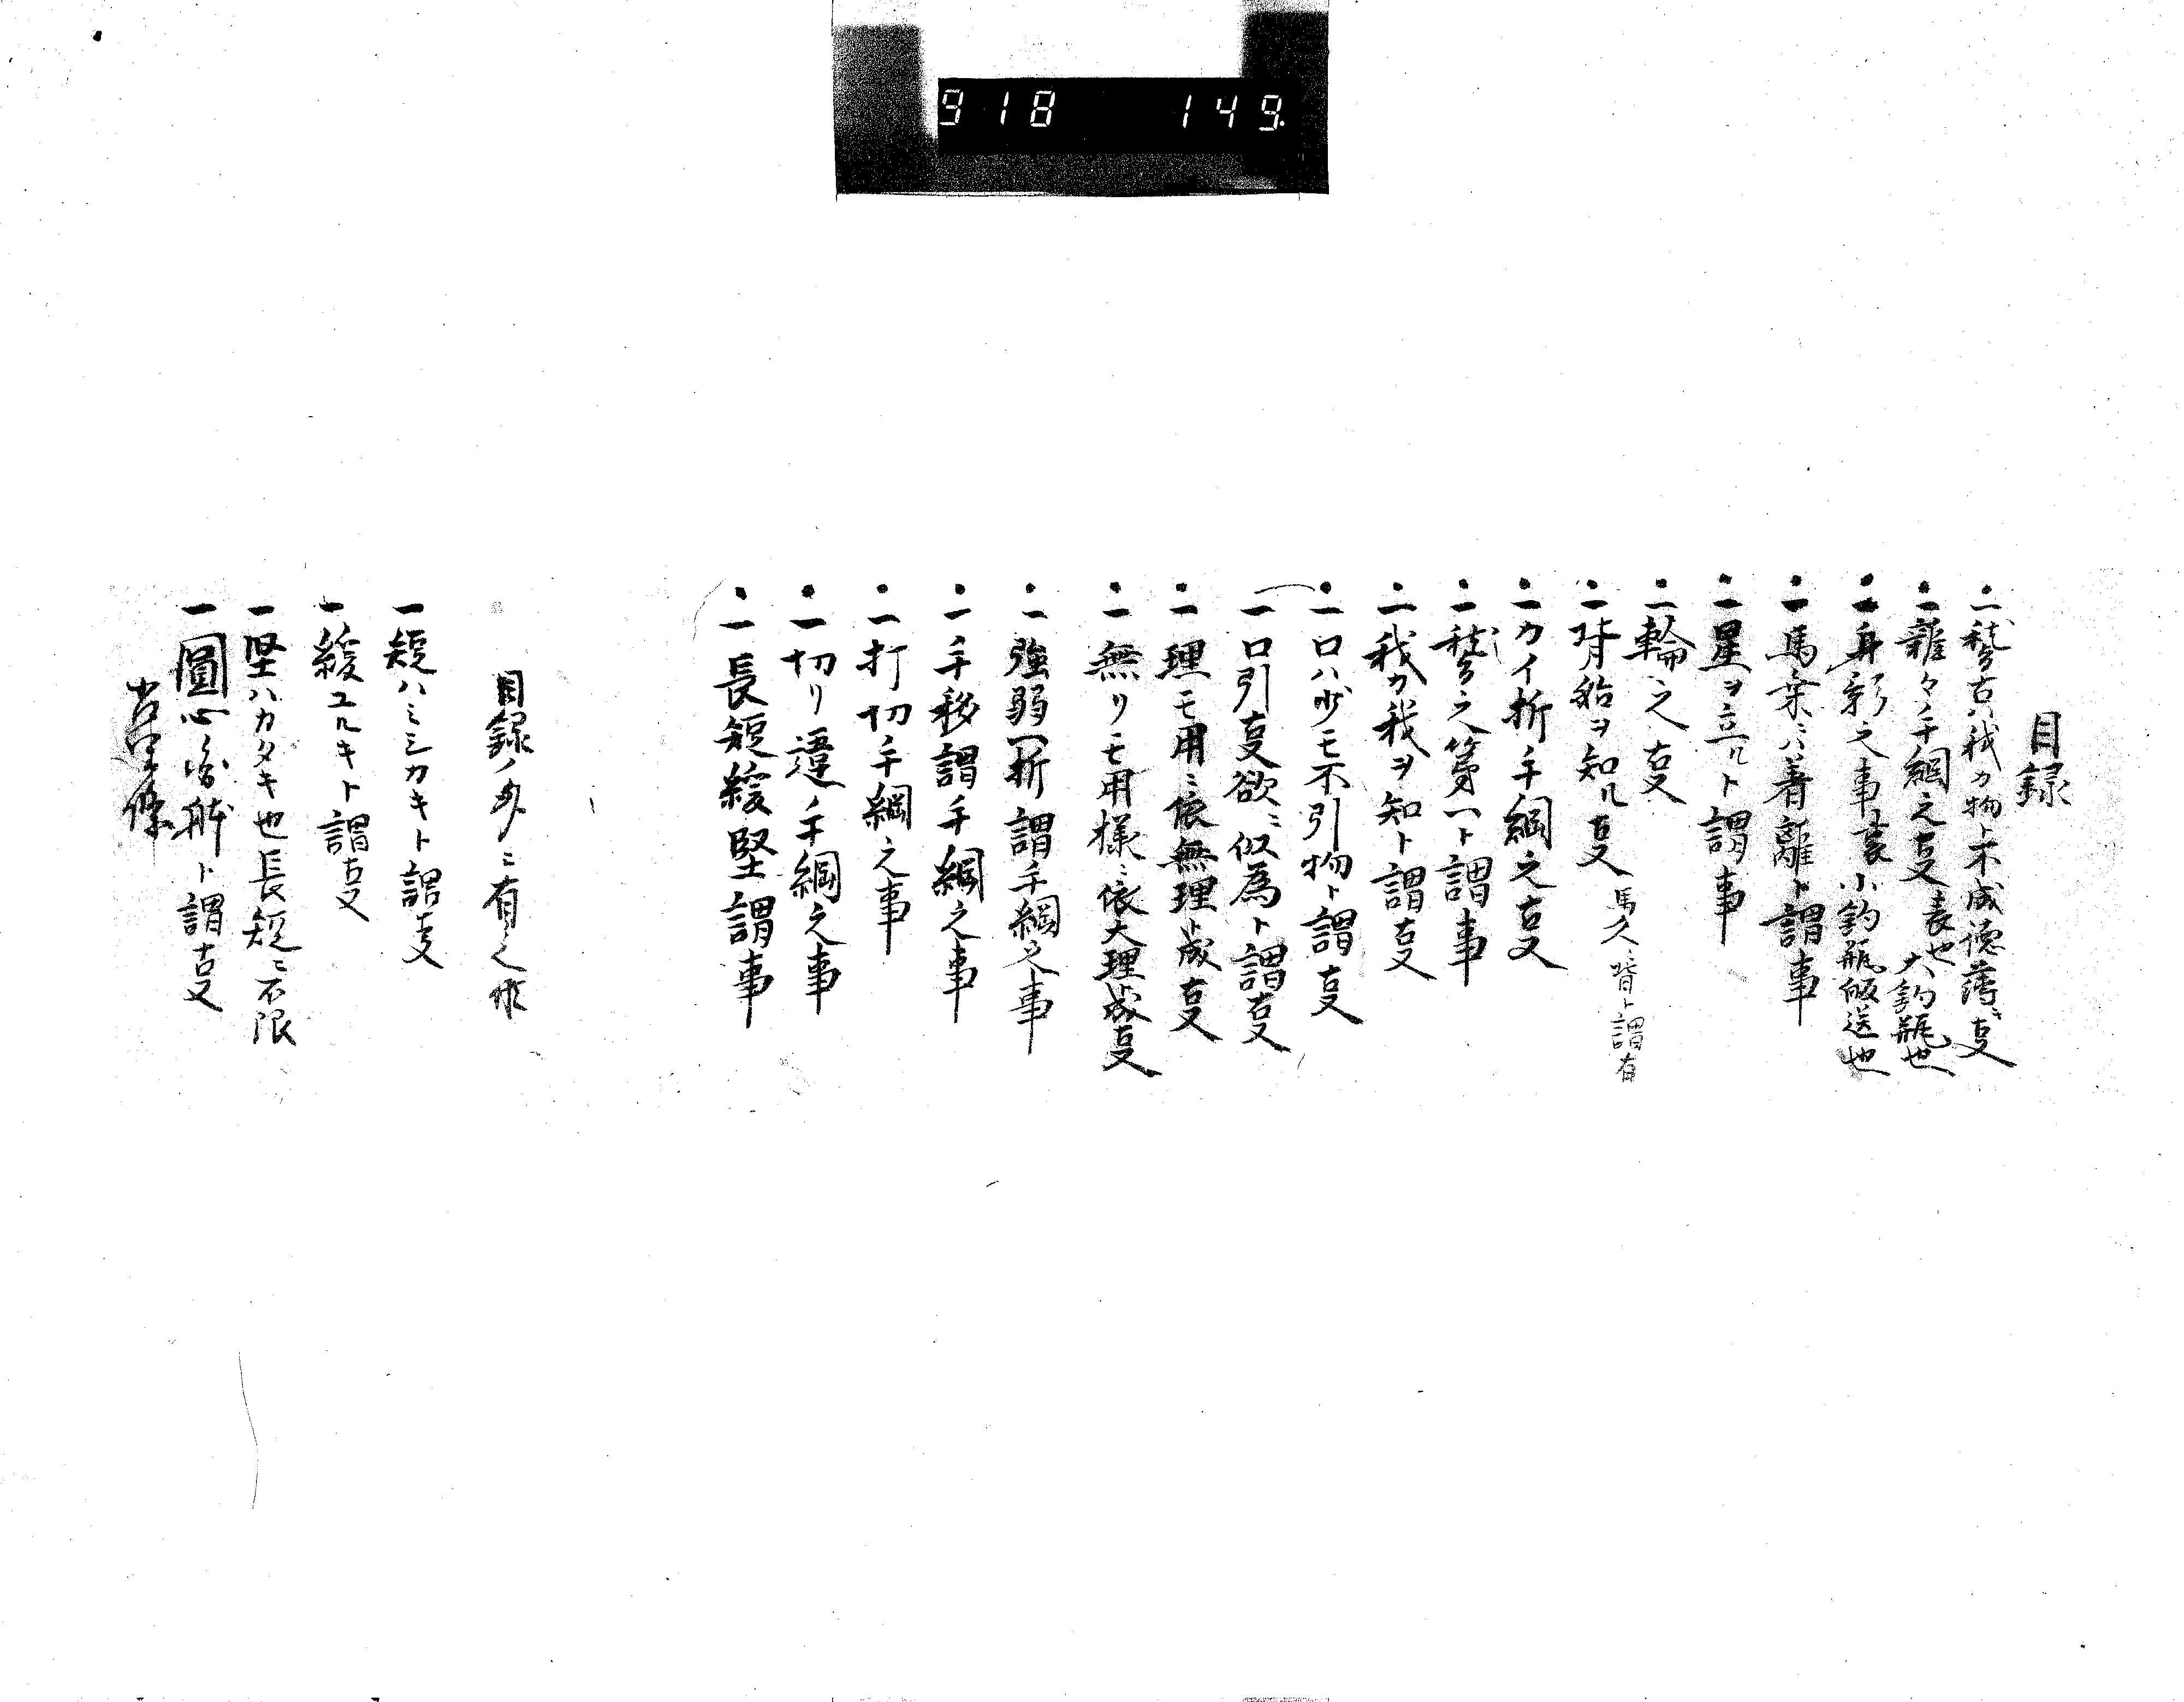 918 149
目録
一稽古ハ我カ物ト不成徳薄キ叓
一雑々手綱之叓 表也 大釣瓶也
一身形之事 裏 小釣瓶 返送也
一馬乗ニハ着離ト謂事
一星ヲ立ルト謂事
一輪之叓
一背 ヲ知ル叓 馬 背ト謂有
一カイ折手綱之叓
一稽之第一ト謂事
一我カ我ヲ知ト謂叓
一口ハ少モ不引物ト謂叓
一口引叓欲ニ似為ト謂叓
一理モ用ニ依無理ト成叓
一無リモ用様ニ依大理ト成叓
一強弱一折謂手綱之事
一手移謂手綱之事
一打切手綱之事
一切リ違手綱之事
一長短緩堅謂事
目録ノ外ニ有之
一短ハミシカキト謂叓
一緩ユルキト謂叓
一堅ハカタキ也長短ニ不限
一圓心 ト謂叓
條